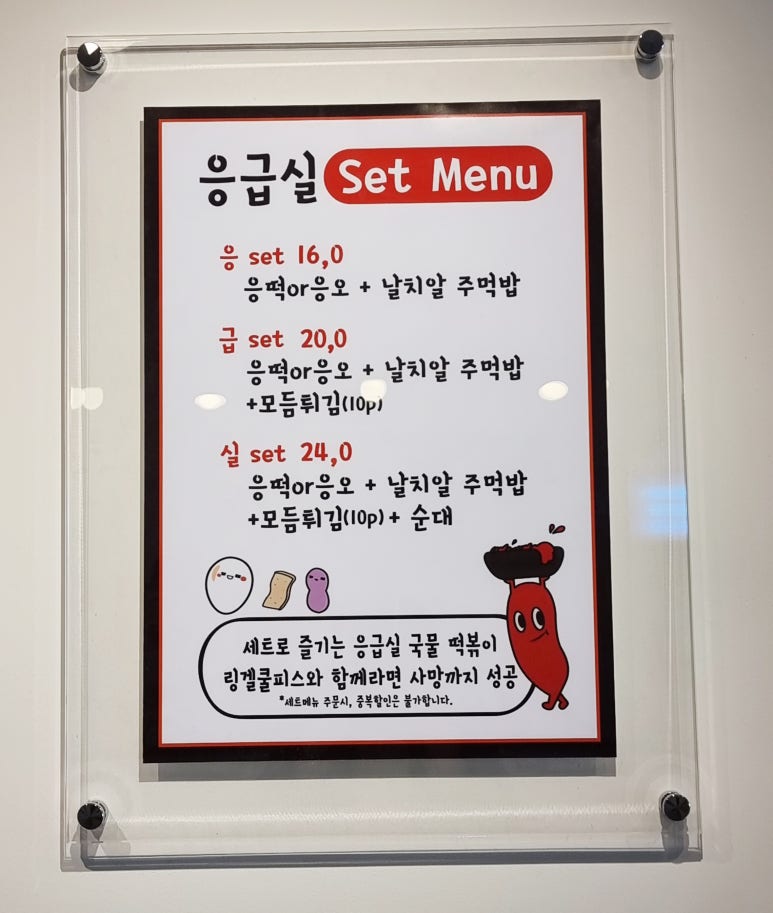 응급실 Set Menu
응 set 16,0
응떡or응오 + 날치알 주먹밥
급 set 20,0
응떡or응오 + 날치알 주먹밥
+모듬튀김(10p)
실 set 24,0
응떡or응오 + 날치알 주먹밥
+모듬튀김(10p)+ 순대
세트로 즐기는 응급실 국물 떡볶이
링겔쿨피스와 함께라면 사망까지 성공
*세트메뉴 주문시, 중복할인은 불가합니다.